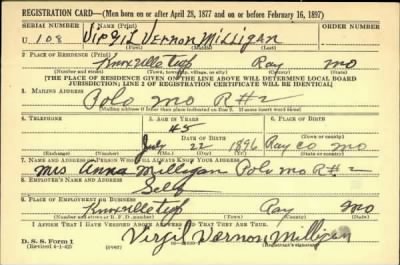 REGISTRATION CARD—(Men born on or after April 28, 1877 and on or before February 16, 1897)
SERIAL NUMBER 1. NAME (Print) ORDER NUMBER
U 108 Virgil Vernon Milligan
(First) (Middle) (Last)
2. PLACE OF RESIDENCE (Print)
Knoxville twp Ray Mo
(Number and street) (Town, township, village, or city) (County) (State)
[THE PLACE OF RESIDENCE GIVEN ON THE LINE ABOVE WILL DETERMINE LOCAL BOARD
JURISDICTION; LINE 2 OF REGISTRATION CERTIFICATE WILL BE IDENTICAL]
3. MAILING ADDRESS
Polo Mo R#2
[Mailing address if other than place indicated on line 2. If same insert word same]
4. TELEPHONE 5. AGE IN YEARS 6. PLACE OF BIRTH
45
DATE OF BIRTH (Town or county)
July 22 1896 Ray co Mo
(Exchange) (Number) (Mo.) (Day) (Yr.) (State or country)
7. NAME AND ADDRESS OF PERSON WHO WILL ALWAYS KNOW YOUR ADDRESS
Mrs Anna Milligan Polo Mo R#2
8. EMPLOYER'S NAME AND ADDRESS
Self
9. PLACE OF EMPLOYMENT OR BUSINESS
Knoxville twp Ray Mo
(Number and street or R. F. D. number) (Town) (County) (State)
I AFFIRM THAT I HAVE VERIFIED ABOVE ANSWERS AND THAT THEY ARE TRUE.
D. S. S. Form 1
(Revised 4-1-42) Virgil Vernon Milligan
(Registrant's signature)